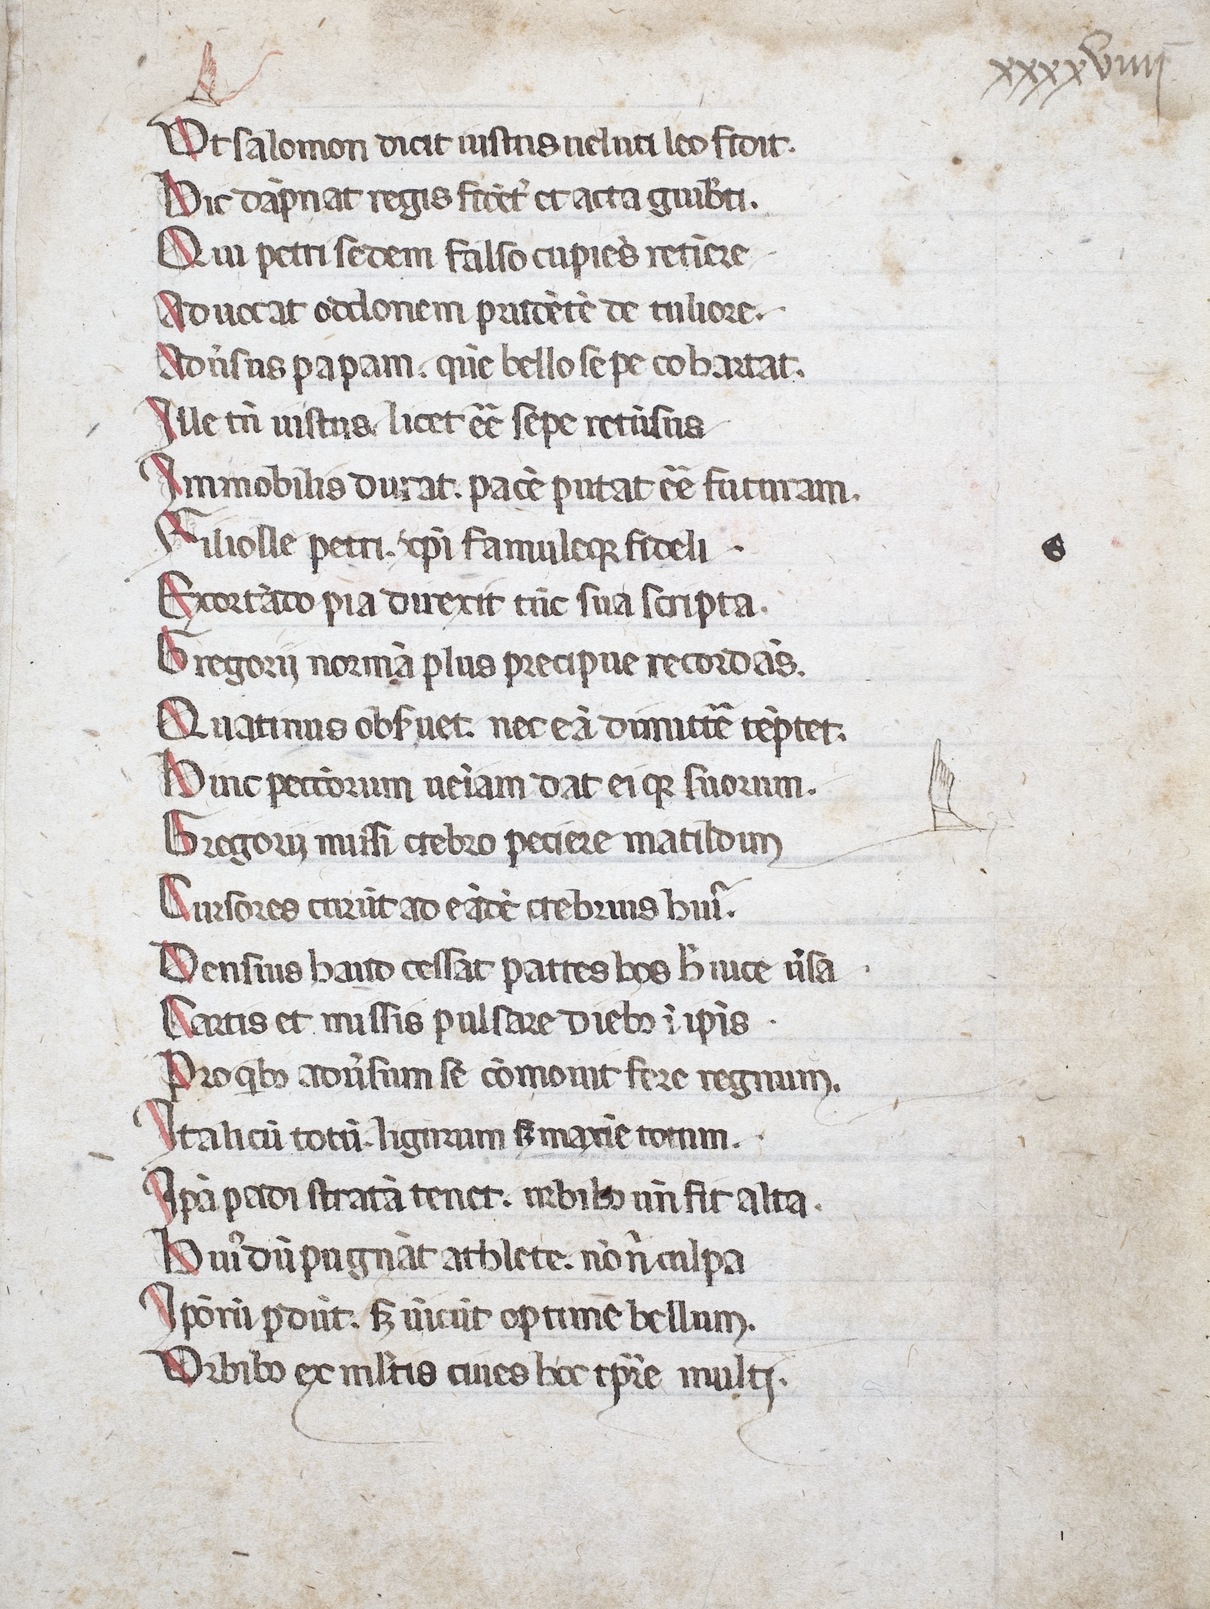 xxxxviiij
Ut salomon dicit iustus ueluti leo fidit.
Hic dãpnat regis fitẽt᷒ et acta guiƀti.
Qui petri sedem falso cupiẽs retiẽre
Aduocat odclonem prudẽtẽ de tuliore.
Adũsus papam. quẽ bello sepe cohartat.
Ille tñ iustus. licet eẽ sepe retũsus
Immobilis durat. pacẽ putat eẽ futuram.
Filiolle petri. xp̃i famuleqꝫ fideli
Exortãdo pia direxit tũc sua scripta.
Gregorij normã plus precipue recordãs.
Quatinus obs̃uet. nec eã dimittẽ tẽptet.
Hinc pecctorum ueĩam dat eiqꝫ suorum.
Gregorij missi crebro peciere matildim
Cursores currũt ad eãdẽ crebrius hui᷒.
Densius haud cessat partes hos h̃ iuce ũsa
Cartis et missis pulsare diebꝫ ĩ ip̃is
Pro qĩbꝫ adũsum sẽ cõmouit fere regnum.
Italicũ totũ. ligurum sꝫ maxĩe totum.
Ip̃a padi stratã tenet. urbibꝫ uñ fit alta.
Hui᷒ dũ pugnãt athlete. nõ ñ culpa
Ip̃orũ p̃dũt. sꝫ uĩcũt optime bellum.
Urbibꝫ ex ml̃tis ciues hoc tp̃re multi.